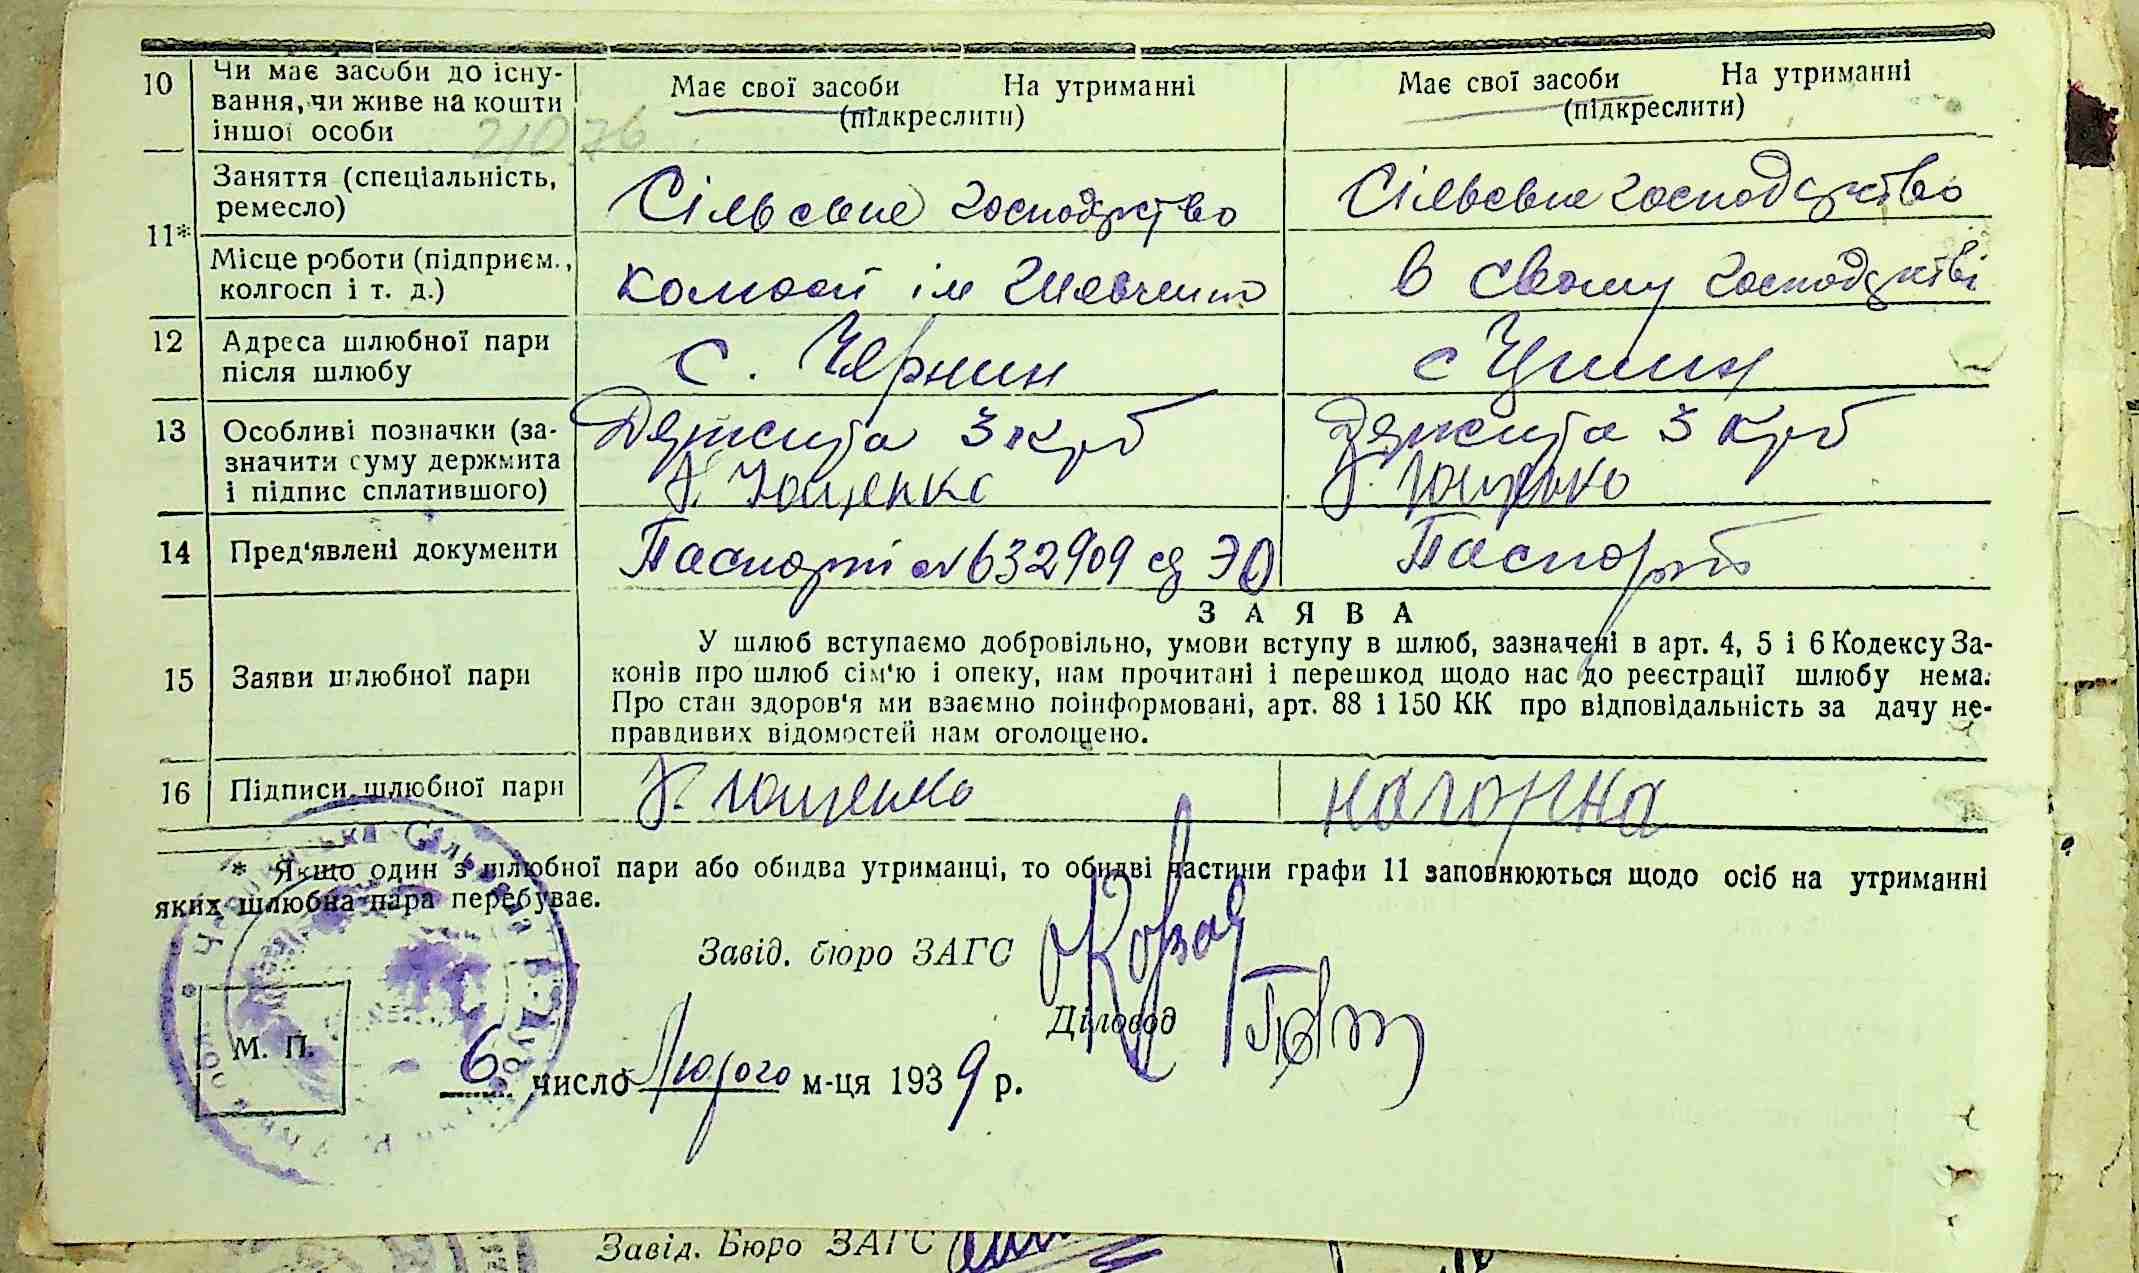 10 Чи має засоби до існу-
вання, чи живе на кошти
іншої особи
Має свої засоби На утриманні
(підкреслити)
Має свої засоби На утриманні
(підкреслити)
21076
11* Заняття (спеціальність,
ремесло)
Сільське господарство
Сільське господарство
Місце роботи (підприєм.,
колгосп і т. д.)
колгосп ім Шевченка
в свому господарстві
12 Адреса шлюбної пари
після шлюбу
с. Чернин
с
13 Особливі позначки (за-
значити суму держмита
і підпис сплатившого)
Держмита 3 крб
Ющенко
Держмита 3 крб
Ющенко
14 Пред'явлені документи
Паспорті № 632909
Паспорт
15 Заяви шлюбної пари
ЗАЯВА
У шлюб вступаємо добровільно, умови вступу в шлюб, зазначені в арт. 4, 5 і 6 Кодексу За-
конів про шлюб сім'ю і опеку, нам прочитані і перешкод щодо нас до реєстрації шлюбу нема.
Про стан здоров'я ми взаємно поінформовані, арт. 88 і 150 КК про відповідальність за дачу не-
правдивих відомостей нам оголошено.
16 Підписи шлюбної пари
Ющенко
Нагорна
* Якщо один з шлюбної пари або обидва утриманці, то обидві частини графи 11 заповнюються щодо осіб на утриманні
яких шлюбна пара перебуває.
Завід. бюро ЗАГС
Діловод
М. П.
6 число Лютого м-ця 1939 р.
Завід. Бюро ЗАГС